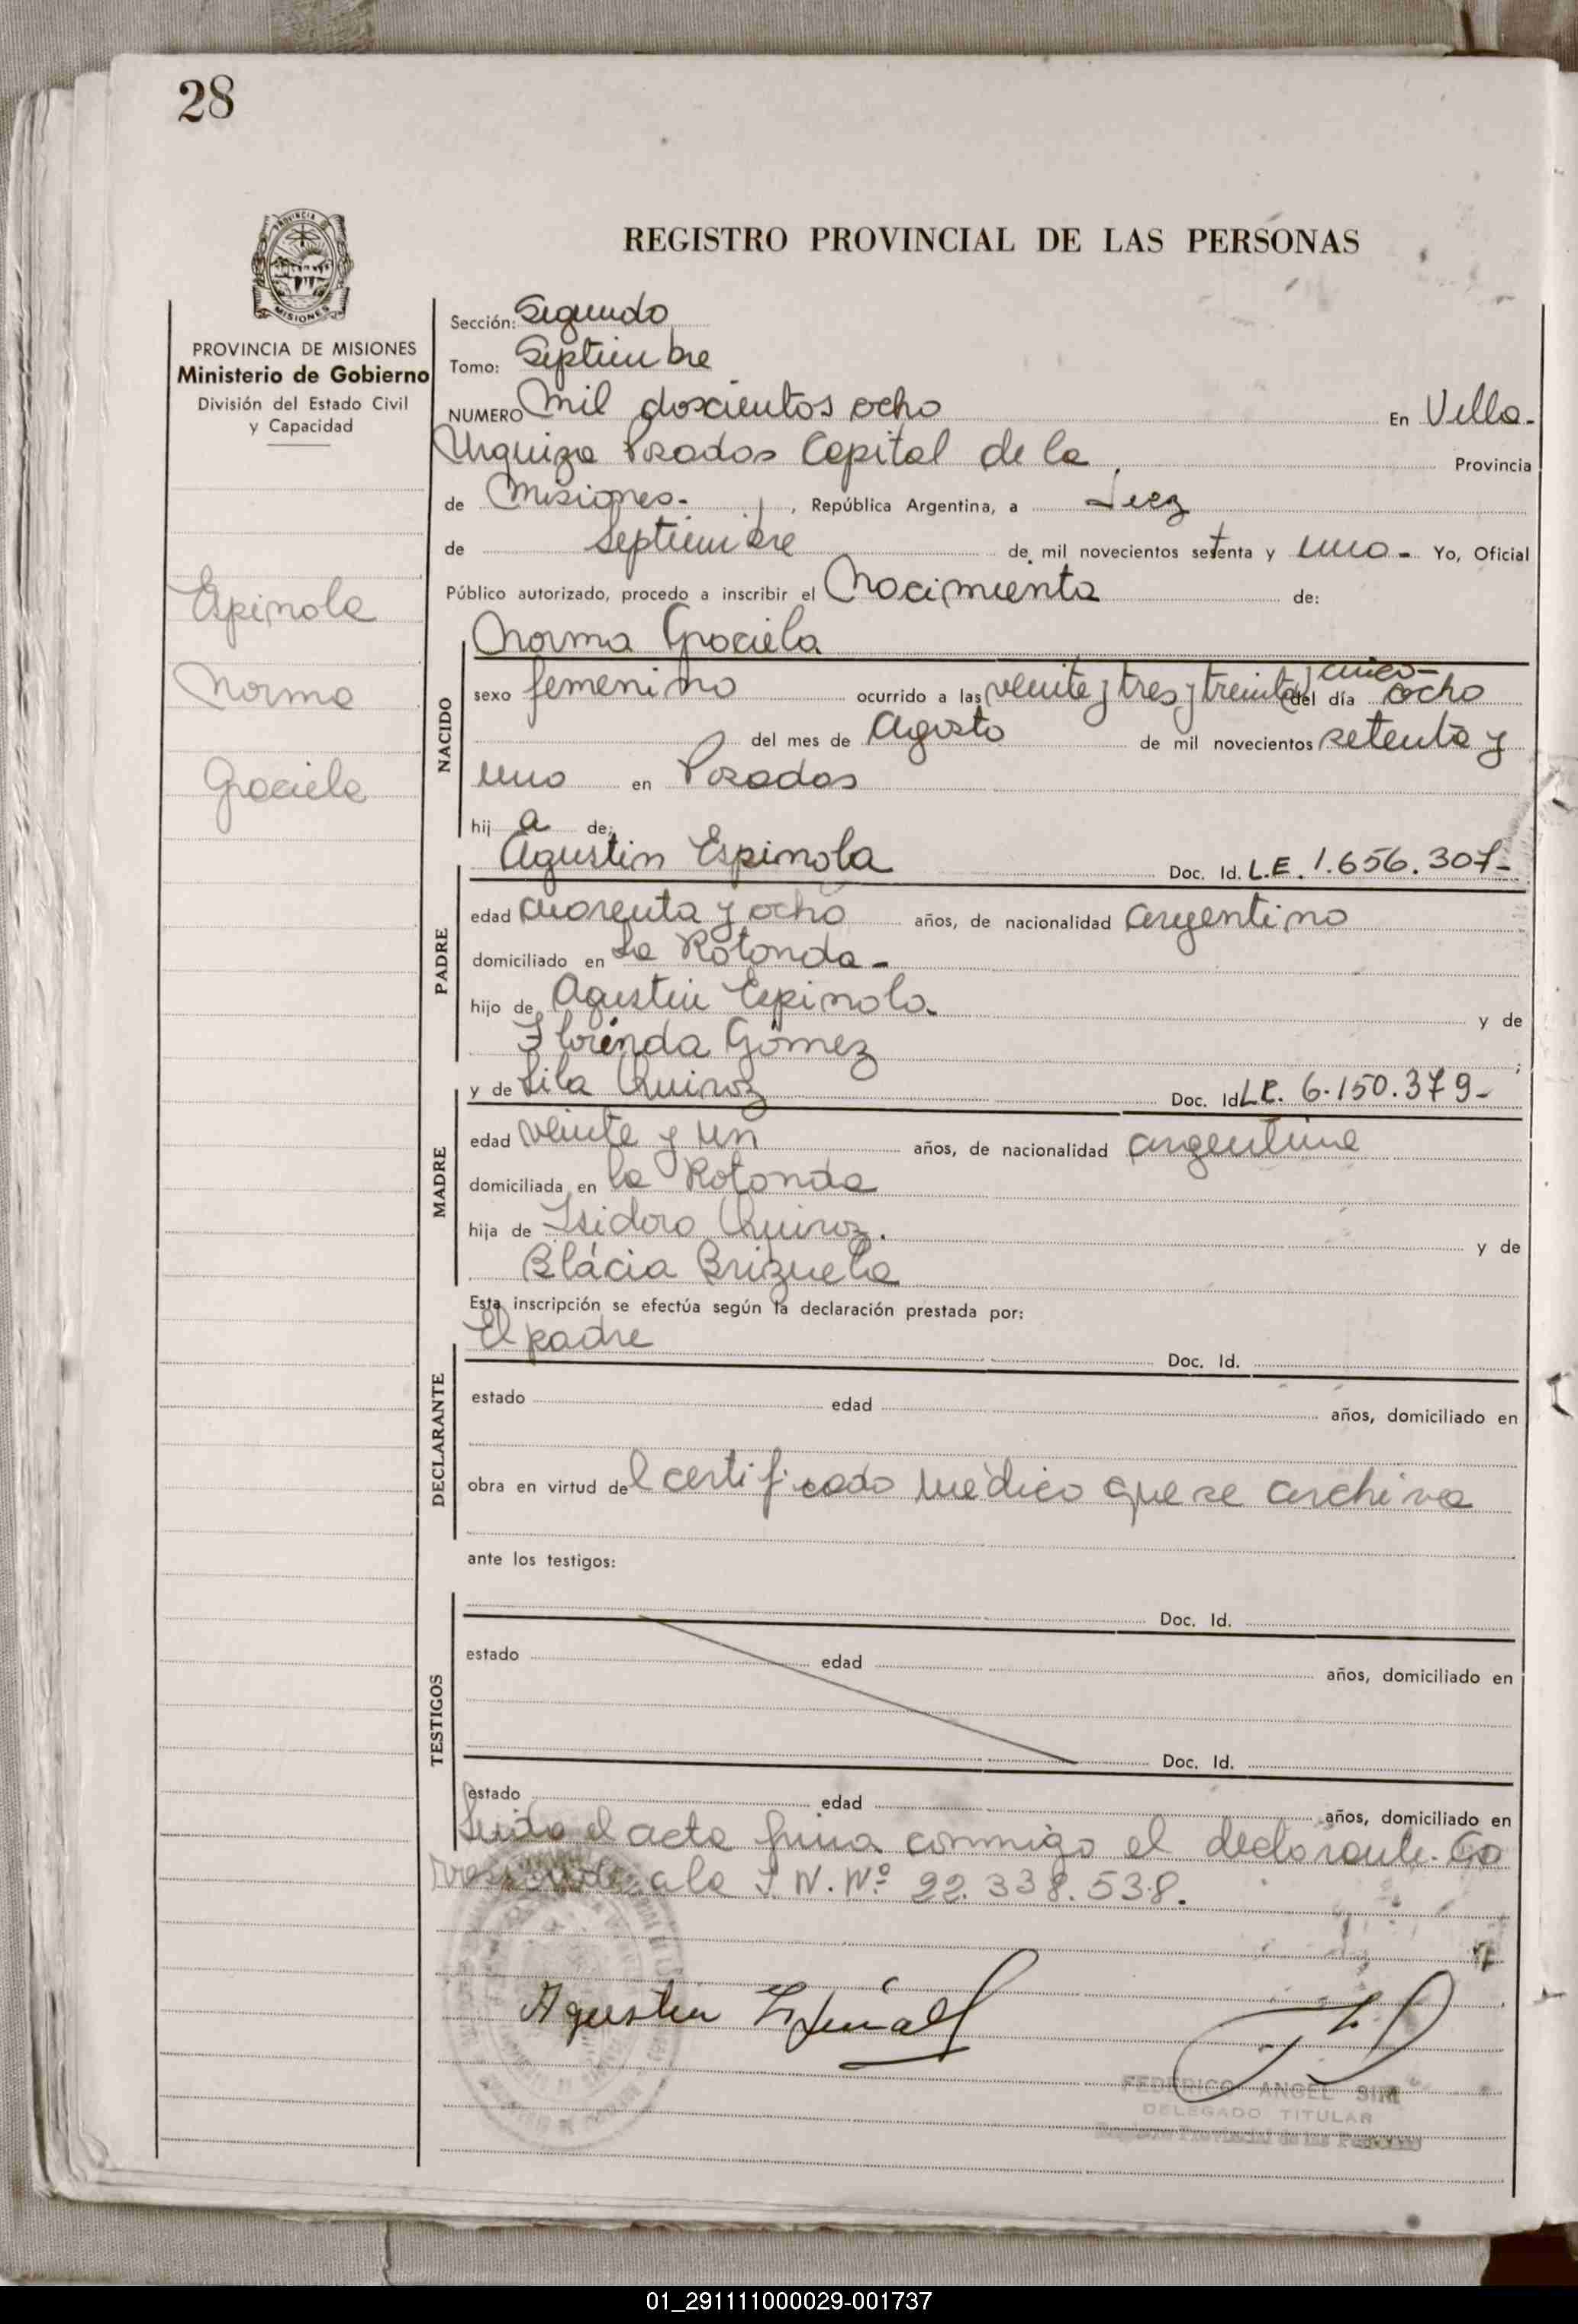 28
REGISTRO PROVINCIAL DE LAS PERSONAS
PROVINCIA DE MISIONES
Ministerio de Gobierno
División del Estado Civil
y Capacidad
Espinola
Norma
Graciela
Sección: Segundo
Tomo: Septiembre
NUMERO Mil doscientos ocho En Villa-
Urquiza Posadas Capital de la Provincia
de Misiones-, República Argentina, a diez
de Septiembre de mil novecientos setenta y uno- Yo, Oficial
Público autorizado, procedo a inscribir el Nacimiento de:
NACIDO
Norma Graciela
y cinco-
sexo femenino ocurrido a las veinte y tres y treinta del día ocho
del mes de Agosto de mil novecientos setenta y
uno en Posadas
hij a de:
PADRE
Agustin Espinola Doc. Id. L.E. 1.656.307-
edad cuarenta y ocho años, de nacionalidad argentino
domiciliado en La Rotonda-
hijo de Agustin Espinola. y de
Florinda Gómez ;
MADRE
y de Lila Quiroz Doc. Id. L.C. 6.150.379-
edad veinte y un años, de nacionalidad argentina
domiciliada en la Rotonda
hija de Isidoro Quiroz. y de
Blácia Brizuela
Esta inscripción se efectúa según la declaración prestada por:
DECLARANTE
El padre Doc. Id.
estado edad años, domiciliado en
obra en virtud del certificado médico que se archiva
ante los testigos:
TESTIGOS
Doc. Id.
estado edad años, domiciliado en
Doc. Id.
estado edad años, domiciliado en
Leida el acta firma conmigo el declarante. Co
rresponde a la I.N.Nº 22.338.538.
Agustin
FEDERICO ANGEL
DELEGADO TITULAR
Registro Provincial de las Personas
01_291111000029-001737